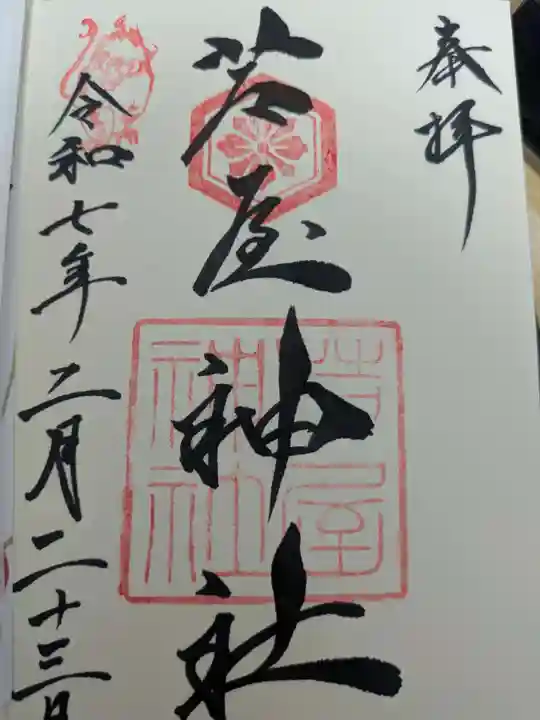 奉拝
芦屋神社
芦屋
神社
令和七年二月二十三日